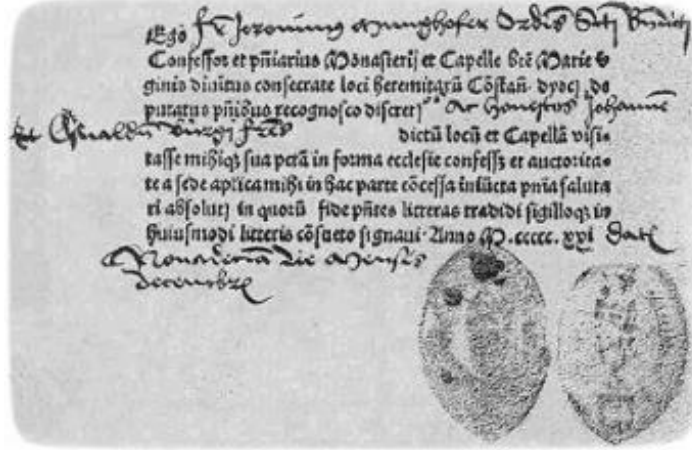 Ego fr Jeronimus Munghofer Ordis Scti Bndicti
Confessor et pñiarius Monasterij et Capelle btē Marie v̄
ginis diuitus consecrate loci heremitarū Cōstañ. dyoc̄ de
putatus pñibus recognosco discret Ac honestos Johannē
et Oswaldū frēs dictū locū et Capellā visi-
tasse mihiq̨ sua pctā in forma ecclesie confess̄ et auctorita-
te a sede aplica mihi in hac parte cōcessa iniūcta pnia saluta
ri absolut in quorū fide pñtes litteras tradidi sigilloq̨ in
huiusmodi litteris cōsueto signaui. Anno M. ccccc. xxi Dat
Nona die Mensis
decembr